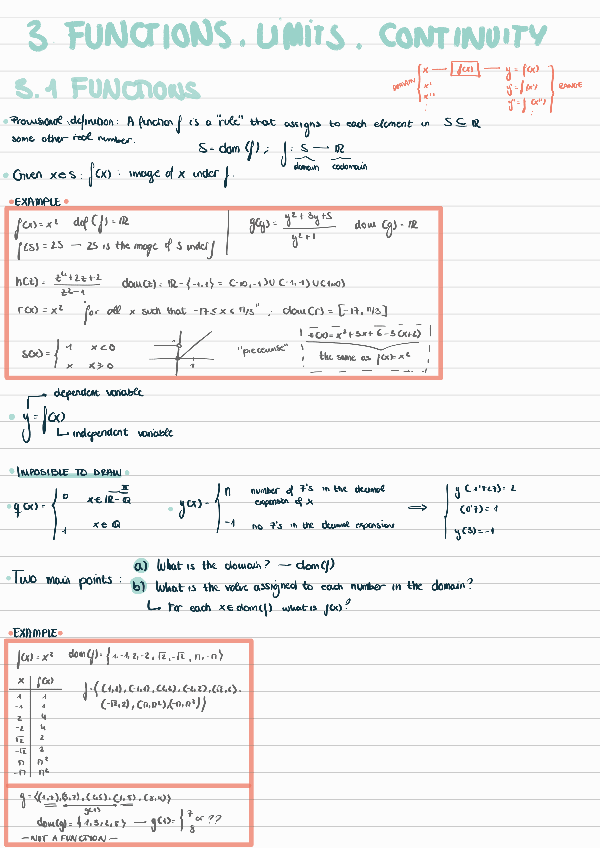 3 FUNCTIONS. LIMITS. CONTINUITY
DOMAIN { x — f(x) — y = f(x) } RANGE
x' y' = f(x')
x'' y'' = f(x'')
3.1 FUNCTIONS
• Provisional definition: A function f is a "rule" that assigns to each element in S ⊆ ℝ
some other real number.
S = dom(f); f: S → ℝ
domain codomain
• Given x∈S: f(x): image of x under f.
• EXAMPLE •
f(x) = x² def(f) = ℝ
f(5) = 25 → 25 is the image of 5 under f
g(y) = (y² + 3y + 5)/(y² + 1) dom(g) = ℝ
h(z) = (z⁴ + 2z + 2)/(z² - 1) dom(z): ℝ - {-1, 1} = (-∞, -1) ∪ (-1, 1) ∪ (1, ∞)
r(x) = x² "for all x such that -17 ≤ x ≤ π/3"; dom(r) = [-17, π/3]
s(x) = { 1 x < 0
x x ≥ 0
"piecewise"
t(x) = x³ + 3x + 6 - 3(x+2)
the same as f(x) = x²
dependent variable
• y = f(x)
independent variable
• IMPOSIBLE TO DRAW •
• φ(x) = { 0 x ∈ ℝ - ℚ
1 x ∈ ℚ
• y(x) = { n number of 7's in the decimal
expansion of x
-1 no 7's in the decimal expansions
⇒ { y(1'727) = 2
(0'7) = 1
y(3) = -1
• Two main points: a) What is the domain? — dom(f)
b) What is the value assigned to each number in the domain?
↳ For each x ∈ dom(f) what is f(x)?
• EXAMPLE •
f(x) = x² dom(f) = {1, -1, 2, -2, √2, -√2, π, -π}
x f(x)
1 1
-1 1
2 4
-2 4
√2 2
-√2 2
π π²
-π π²
f = {(1,1), (-1,1), (2,4), (-2,4), (√2,2),
(-√2,2), (π,π²), (-π,π²)}
g = {(1,7), (3,7), (2,5), (1,5), (8,4)}
g(1)
dom(g) = {1, 3, 2, 5} → g(1) = { 7 or ??
8
— NOT A FUNCTION —